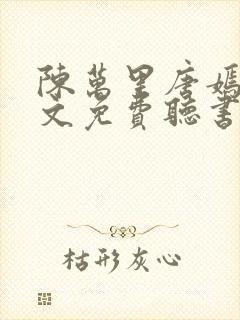 陳萬里唐嫣
文免費聽書
枯形灰心